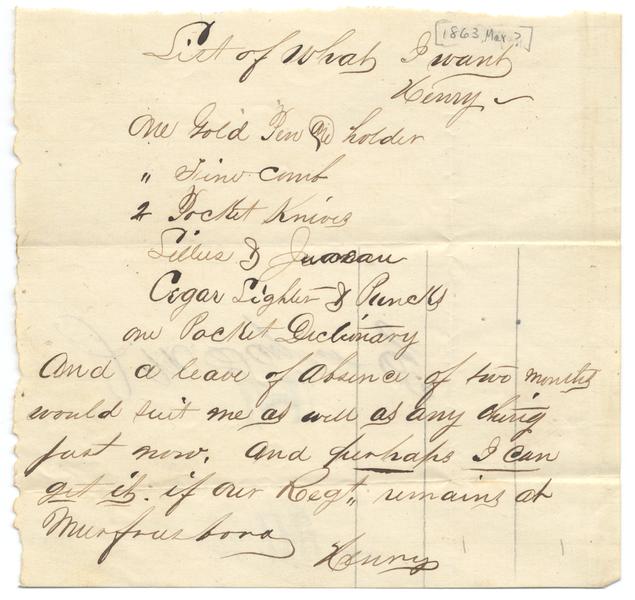 [1863, Mar ?]
List of what I want
Henry
One Gold Pen and holder
" Fine comb
2 Pocket Knives
&
Cegar Lighter & Puncks
one Pocket Dictionary
And a leave of absence of two months
would suit me as well as any thing
just now. And perhaps I can
get it. if our Regt,, remains at
Murfreesboro
Henry